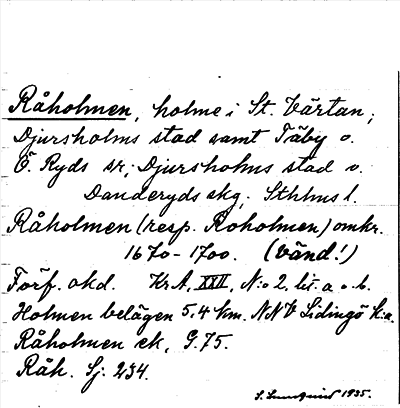 Råholmen, holme i St. Värtan;
Djursholms stad samt Täby o.
Ö. Ryds sr; Djursholms stad o.
Danderyds skg; Sthlms l.
Råholmen (resp. Roholmen) omkr.
1670-1700. (vänd!)
Förf. okd. KrA, XXII, N:o 2, lit. a o. b.
Holmen belägen 5,4 km. NNV Lidingö k:a.
Råholmen ek, G.75.
Råh. Sj: 234.
S. Lundqvist 1935.